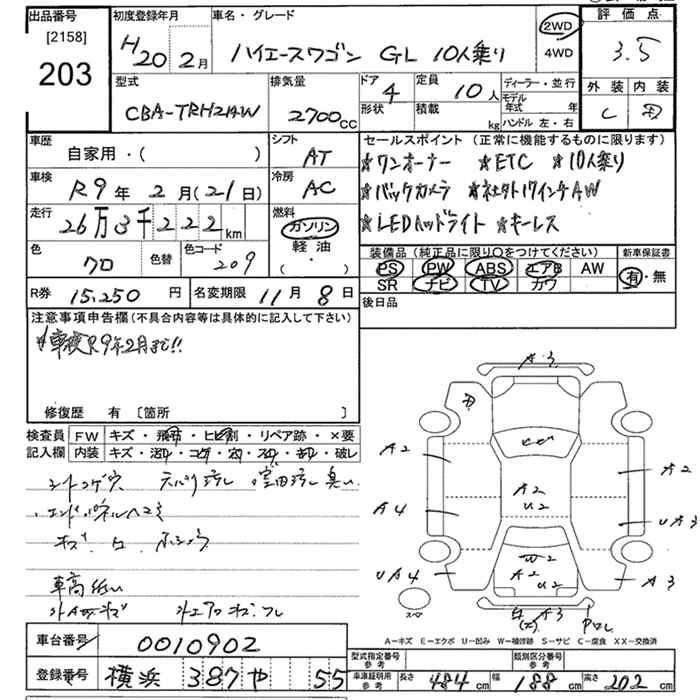 出品番号 初度登録年月 車名・グレード 評価点
[2158]
203
H20 2月 ハイエースワゴン GL 10人乗り 2WD 4WD 3.5
外装 内装
C
型式 排気量 ドア 定員 ディーラー・並行
CBA-TRH214W 2700cc 4 10人
形状 積載 kg モデル年式 年
ハンドル 左・右
車歴 シフト セールスポイント (正常に機能するものに限ります)
自家用・( ) AT ☆ワンオーナー ☆ETC ☆10人乗り
車検 冷房
R9年 2月(21日) AC ☆バックカメラ ☆社外17インチAW
走行 燃料
26万3千222km ガソリン 軽油 (・) ☆LEDヘッドライト ☆キーレス
色 色替 色コード
クロ 209
装備品 (純正品に限り○をつけてください) 新車保証書
PS PW ABS エアB AW 有・無
SR ナビ TV カワ
R券 15,250円 名変期限 11月8日 後日品
注意事項申告欄(不具合内容等は具体的に記入して下さい)
車検R9年2月まで!!
修復歴 有 [箇所 ]
検査員 FW キズ・飛石・ヒビ割・リペア跡・×要
記入欄 内装 キズ・汚れ・コゲ・穴・スレ・切れ・破レ
シートコゲ穴 天張り汚れ 室内汚れ臭い
エンドパネルヘコミ
車高低い
A3
A2 A2
A2
U2
A4 UA3
W2
A2
U2
UA4 A3
A3
スペ
A-キズ E-エクボ U-凹み W-補修跡 S-サビ C-腐食 XX-交換済
車台番号 0010902 型式指定番号 参考 類別区分番号 参考
登録番号 横浜 387 や 55 車庫証明用 参考 長さ 484cm 幅 188cm 高さ 202cm